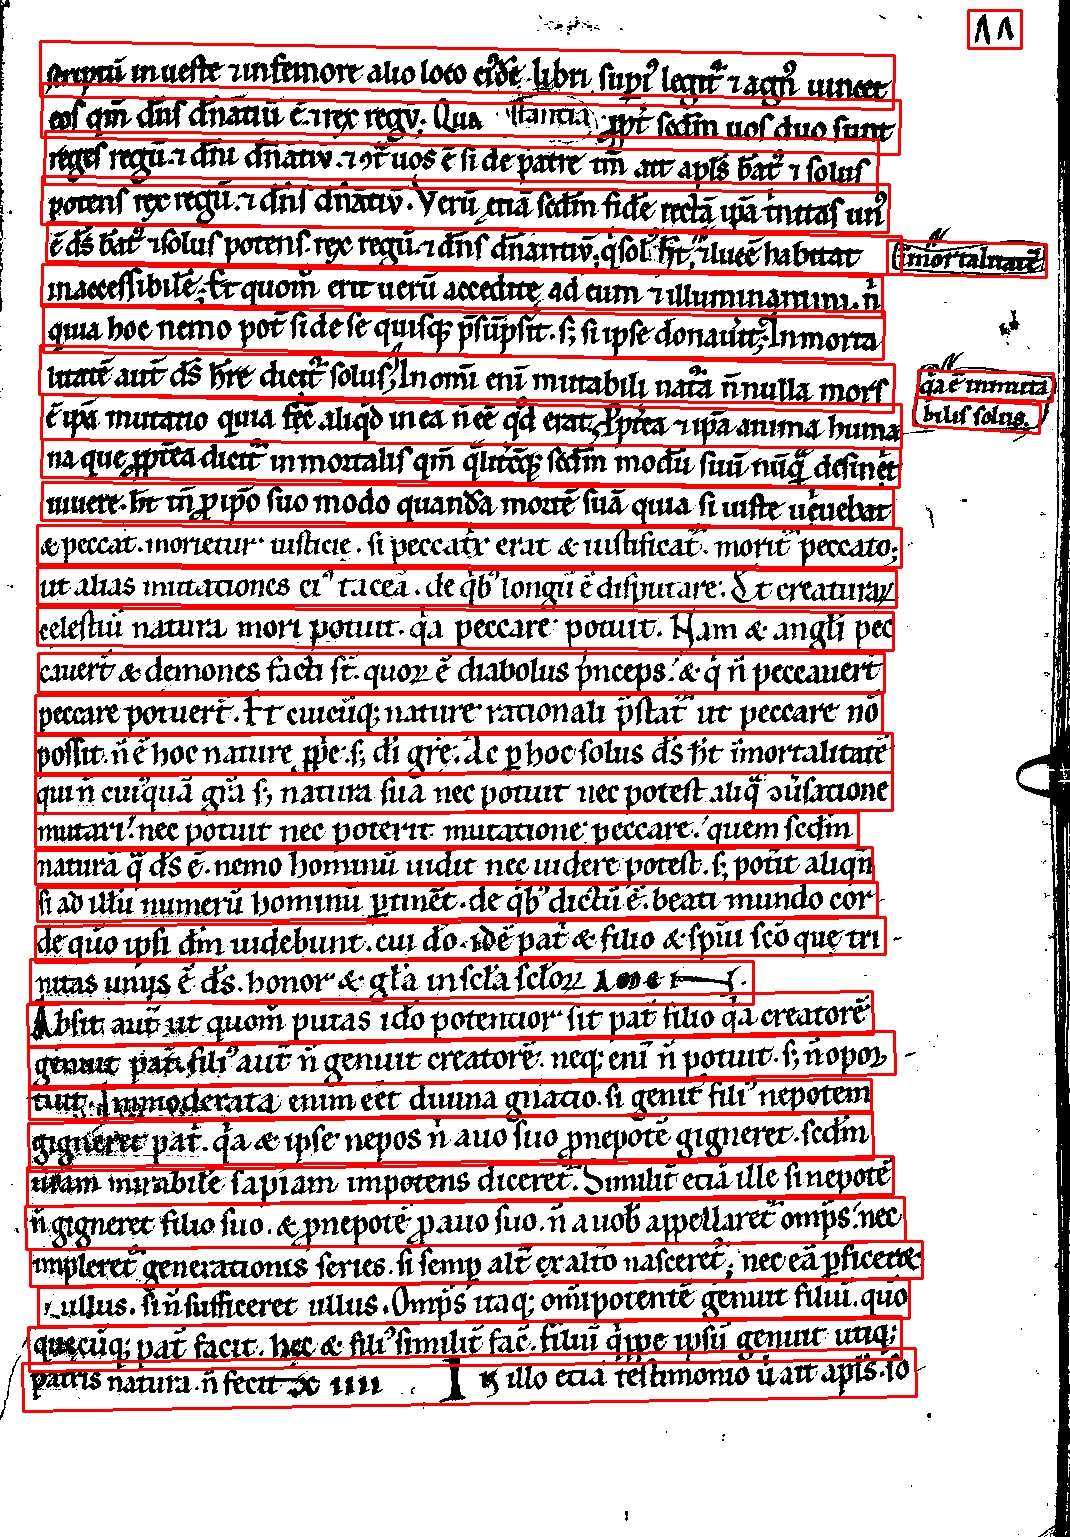 11
scriptū in ueste ⁊ in femore alio loco eiꝰdē libri supiꝰ legit᷑ ⁊ agnꝰ uincet
eos qm̄ dn̄s dn̄atiū ē ⁊ rex regū. Qua ꝓpt̄ scdm̄ uos duo sunt
reges regū ⁊ dn̄i dn̄atiū. ⁊ ꝯt᷑ uos ē si de patre tm̄ ait apłs b̄atꝰ ⁊ solus
potens rex regū. ⁊ dn̄s dn̄atiū. Verū etiā scdm̄ fidē rectā ipā t̓nitas unꝰ
ē ds̄ b̄atꝰ ⁊ solus potens. rex regū ⁊ dn̄s dn̄antiū, q̓ solꝰ h̄t, ⁊ lucē habitat
īmortalitatē
inaccessibilē. Et quom̄ erit uerū accedite ad eum ⁊ illuminamini. n̄
quia hoc nemo pot̄ si de se quisq; p̄sūpsit. s; si ipse donauit; Inmorta
litatē aut̄ ds̄ h̄re dicit᷑ solus, In om̄i eni mutabili nat᷑a n̄ nulla mors
q̓a ē inmuta
bilis solus.
ē ipā mutatio quia fec̄ aliq̓d in ea n̄ eē q̓d erat. Ꝓpt̄ea ⁊ ipā anima huma
na que ꝓpt̄ea dicit᷑ inmortalis qm̄ q̄litc̄q; scdm̄ modū suū nūq̄ desinet
uiuere. h̄t tn̄ ꝓ ip̄o suo modo quandā mortē suā quia si iuste uiuebat
& peccat. morietur iusticie. si peccatr̄ erat & iustificat᷑. morit᷑ peccato;
ut alias mutationes eiꝰ taceā. de q̓bꝰ longū ē disputare. Et creaturaꝝ
celestiū natura mori potuit. q̓a peccare potuit. Nam & angl̄i pec
cauert̄ & demones facti st̄. quoꝝ ē diabolus p̓nceps. & q̓ n̄ peccauert̄
peccare potuert̄. Et cuicūq; nature rationali p̄stat᷑ ut peccare nō
possit. n̄ ē hoc nature ꝓp̄e. s; di gr̄e. Ac ꝑ hoc solus ds̄ h̄t īmortalitatē
qui n̄ cuiꝰquā gr̄a s; natura suā nec potuit nec potest aliq̄ ꝯūsatione
mutari. nec potuit nec poterit mutatione peccare. quem scdm̄
naturā q̄ ds̄ ē. nemo hominū uidit nec uidere potest. s; potit̄ aliqn̄
si ad illū numerū hominū ꝑtinēt. de q̓bꝰ dictū ē. beati mundo cor
de quō ipsi dm̄ uidebunt. cui do. idē pat̄ & filio & spiū scō que tri
nitas unus ē ds̄. honor & gl̄a in scl̄a scl̄oꝝ amen.
Absit aut̄ ut quom̄ putas ido potentior sit pat̄ filio q̓a creatorē
genuit pat̄. filiꝰ aut̄ n̄ genuit creatorē. neq; enī n̄ potuit. s; n̄ opor
tuit. Immoderata enim eēt diuina gn̄atio. si genit᷑ filiꝰ nepotem
gigneret pat̄. q̓a & ipse nepos n̄ auo suo ꝓnepotē gigneret. scdm̄
uram mirabilē sapiam impotens diceret᷑. Similit̄ etiā ille si nepotē
n̄ gigneret filio suo. & ꝓnepotē ꝓauo suo. n̄ a uob̄ appellaret᷑ om̄ps. nec
impleret᷑ generationis series. si semꝑ alt̄ ex alt̄o nasceret᷑; nec eā ꝑficeret
ullus. si n̄ sufficeret ullus. Om̄ps itaq; om̄ipotentē genuit filiū. quō
quecūq; pat̄ facit. hec & filiꝰ similit̄ fac̄. filiū q̓ppe ipsū genuit utiq;
patris natura. n̄ fecit X IIII In illo etiā testimonio ū ait apłs. Io